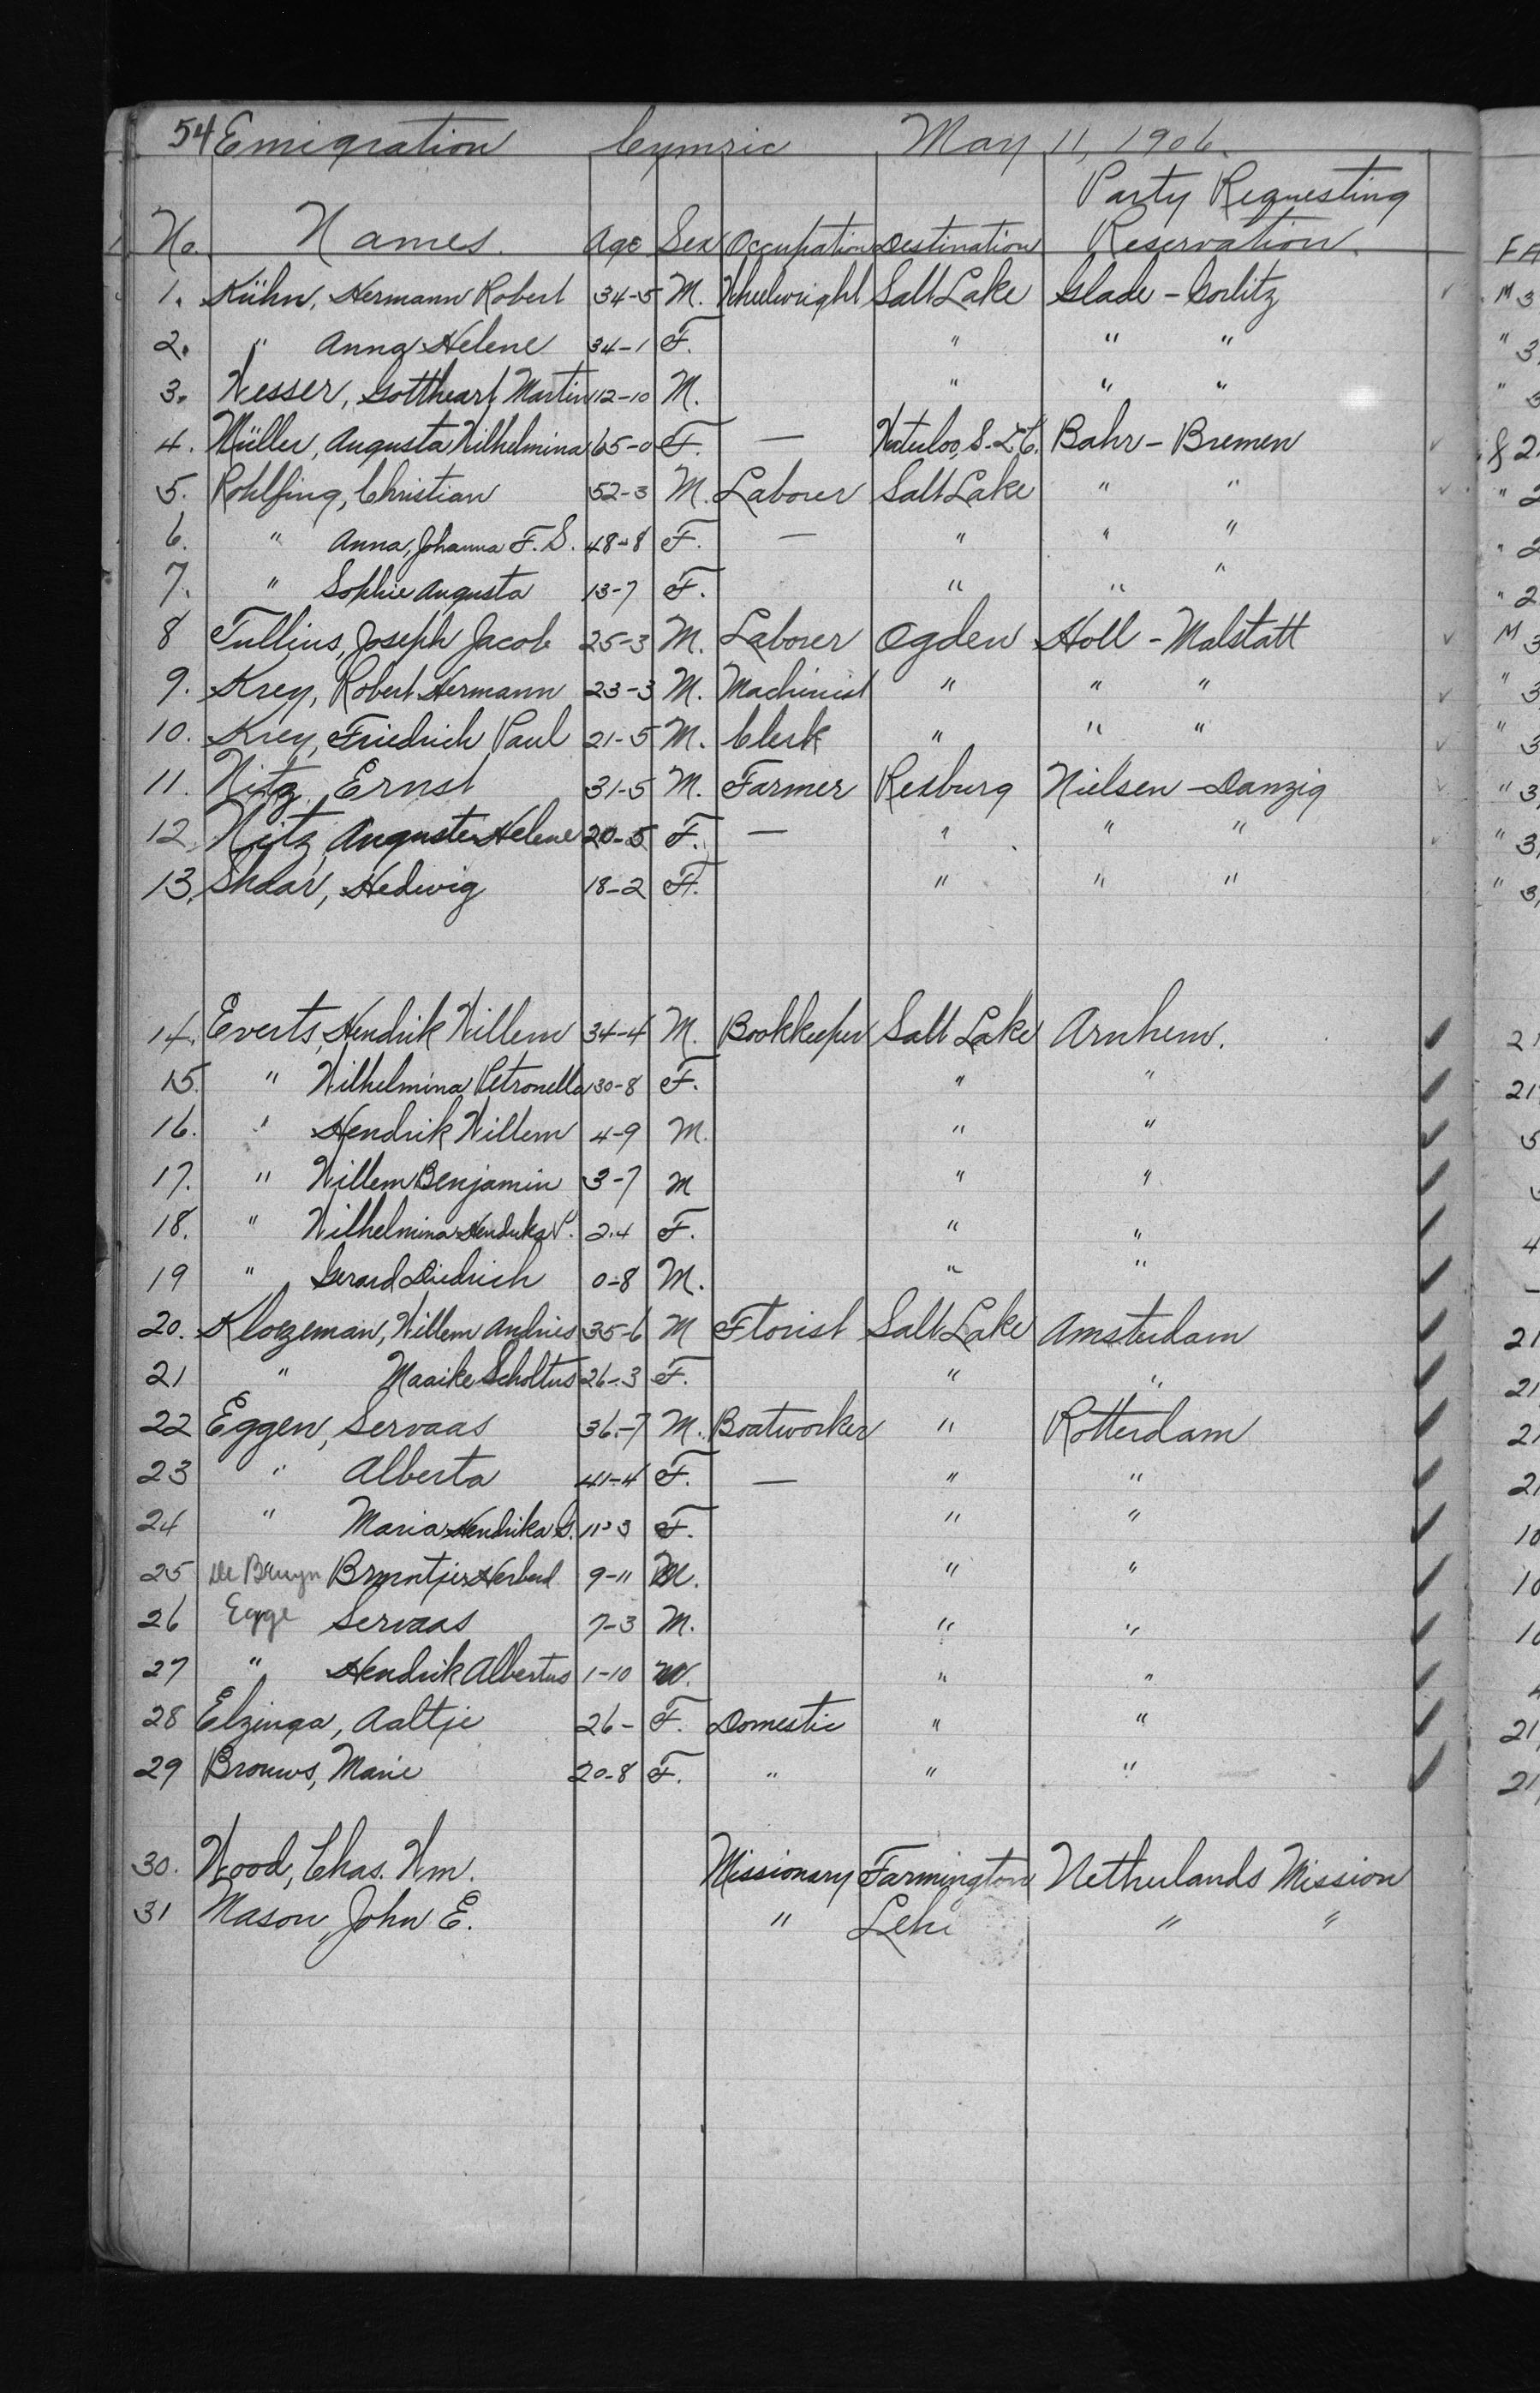 54 Emigration Cymric May 11, 1906.
Party Requesting
No. Names. Age Sex Occupation Destination Reservation.
1. Kühn, Hermann Robert 34-5 M. Wheelwright Salt Lake Glade - Gorlitz ✓
2. " Anna Helene 34-1 F. " " "
3. Wesser, Gotthearl Martin 12-10 M. " " "
4. Müller, Augusta Wilhelmina 65-0 F. — Waterloo, S.L.C. Bahr - Bremen ✓
5. Rohlfing, Christian 52-3 M. Laborer Salt Lake " " ✓
6. " Anna, Johanna F. S. 48-8 F. — " " "
7. " Sophie Augusta 13-7 F. " " "
8 Tullius, Joseph Jacob 25-3 M. Laborer Ogden Holl - Malstatt ✓
9. Krey, Robert Hermann 23-3 M. Machinist " " " ✓
10. Krey, Friedrich Paul 21-5 M. Clerk " " " ✓
11. Nitz, Ernst 31-5 M. Farmer Rexburg Nielsen - Danzig ✓
12. Nitz, Auguste Helene 20-5 F. — " " " ✓
13. Skdar, Hedwig 18-2 F. " " "
14. Everts, Hendrik Willem 34-4 M. Bookkeeper Salt Lake Arnhem. ✓
15. " Wilhelmina Petronella 30-8 F. " " ✓
16. " Hendrik Willem 4-9 M. " " ✓
17. " Willem Benjamin 3-7 M " " ✓
18. " Wilhelmina Hendrika P. 2.4 F. " " ✓
19 " Gerard Diedrich 0-8 M. " " ✓
20. Kloezeman, Willem Andries 35-6 M Florist Salt Lake Amsterdam ✓
21 " Maaike Scholtus 26-3 F. " " ✓
22 Eggen, Servaas 36-7 M. Boatworker " Rotterdam ✓
23 " Alberta 41-4 F. — " " ✓
24 " Maria Hendrika G. 11-3 F. " " ✓
25 De Bruyn 9-11 M. " " ✓
26 Egge Servaas 7-3 M. " " ✓
27 " Hendrik Albertus 1-10 M. " " ✓
28 Elzinga, Aaltje 26- F. Domestic " " ✓
29 Brouws, Marie 20-8 F. " " " ✓
30. Wood, Chas. Wm. Missionary Farmington Netherlands Mission
31 Mason, John E. " Lehi " "